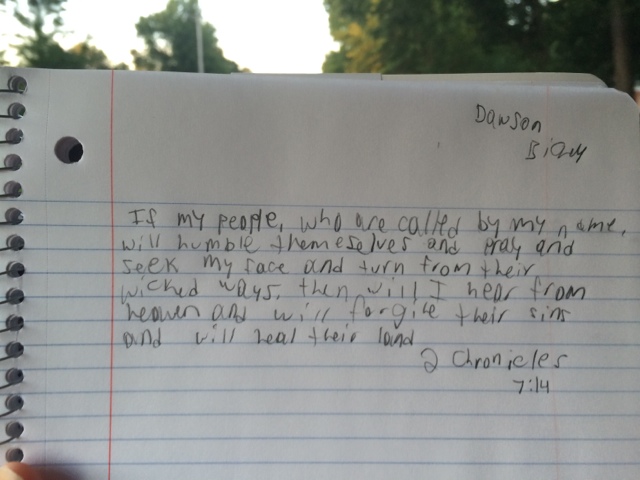 Dawson
If my people, who are called by my name,
will humble themeselves and pray and
seek my face and turn from their
wicked ways, then will I hear from
heaven and will forgive their sins
and will heal their land
2 Chronicles
7:14